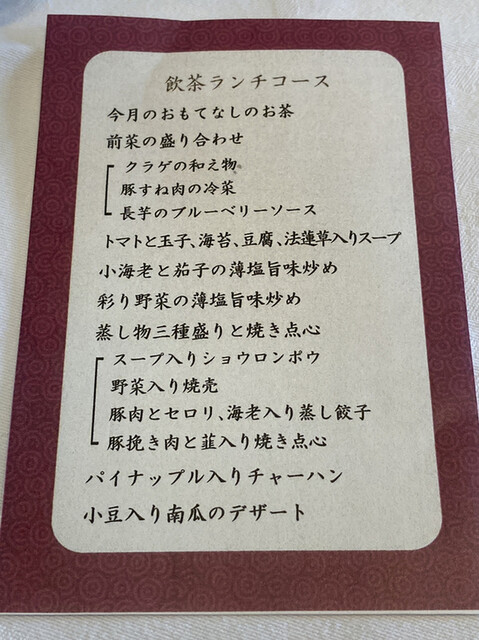 飲茶ランチコース
今月のおもてなしのお茶
前菜の盛り合わせ
クラゲの和え物
豚すね肉の冷菜
長芋のブルーベリーソース
トマトと玉子、海苔、豆腐、法蓮草入りスープ
小海老と茄子の薄塩旨味炒め
彩り野菜の薄塩旨味炒め
蒸し物三種盛りと焼き点心
スープ入りショウロンポウ
野菜入り焼売
豚肉とセロリ、海老入り蒸し餃子
豚挽き肉と韮入り焼き点心
パイナップル入りチャーハン
小豆入り南瓜のデザート